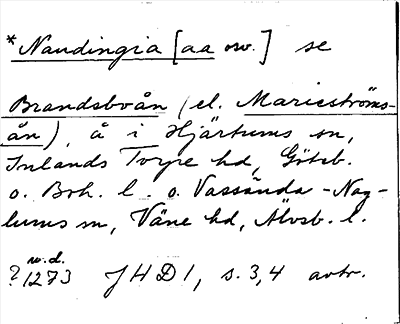 *Naudingia [aa osv.] se
Brandsboån (el. Marieströms-
ån), å i Hjärtums sn,
Inlands Torpe hd, Göteb.
o. Boh. l. o. Vassända-Nag-
lums sn, Väne hd, Älvsb. l.
u.d.
?1273 JHD 1, s. 3,4 avtr.